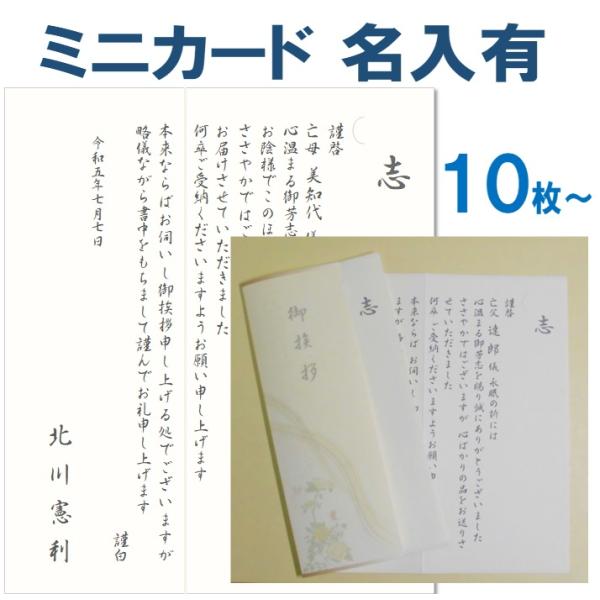 ミニカード 名入有
10枚~
志
謹啓
亡母 美知代 儀
心温まる御芳志
お陰様でこのほ
ささやかではご
お届けさせていただきました
何卒ご受納くださいますようお願い申し上げます
本来ならばお伺いし御挨拶申し上げる処でございますが
略儀ながら書中をもちまして謹んでお礼申し上げます
謹白
令和五年七月七日
北川憲利
御挨拶
志
志
謹啓
亡父 達郎 儀 永眠の折には
心温まる御芳志を賜り誠にありがとうございました
ささやかではございますが 心ばかりの品をお送りさ
せていただきました
何卒ご受納くださいますようお願い
本来ならば お伺いし
ますが